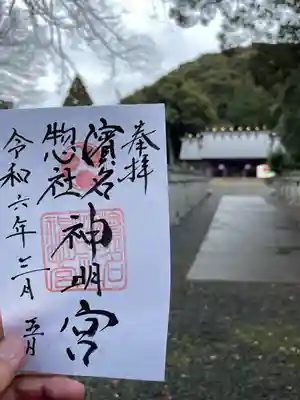 奉拝
濱名
惣社
神明宮
令和六年三月五日